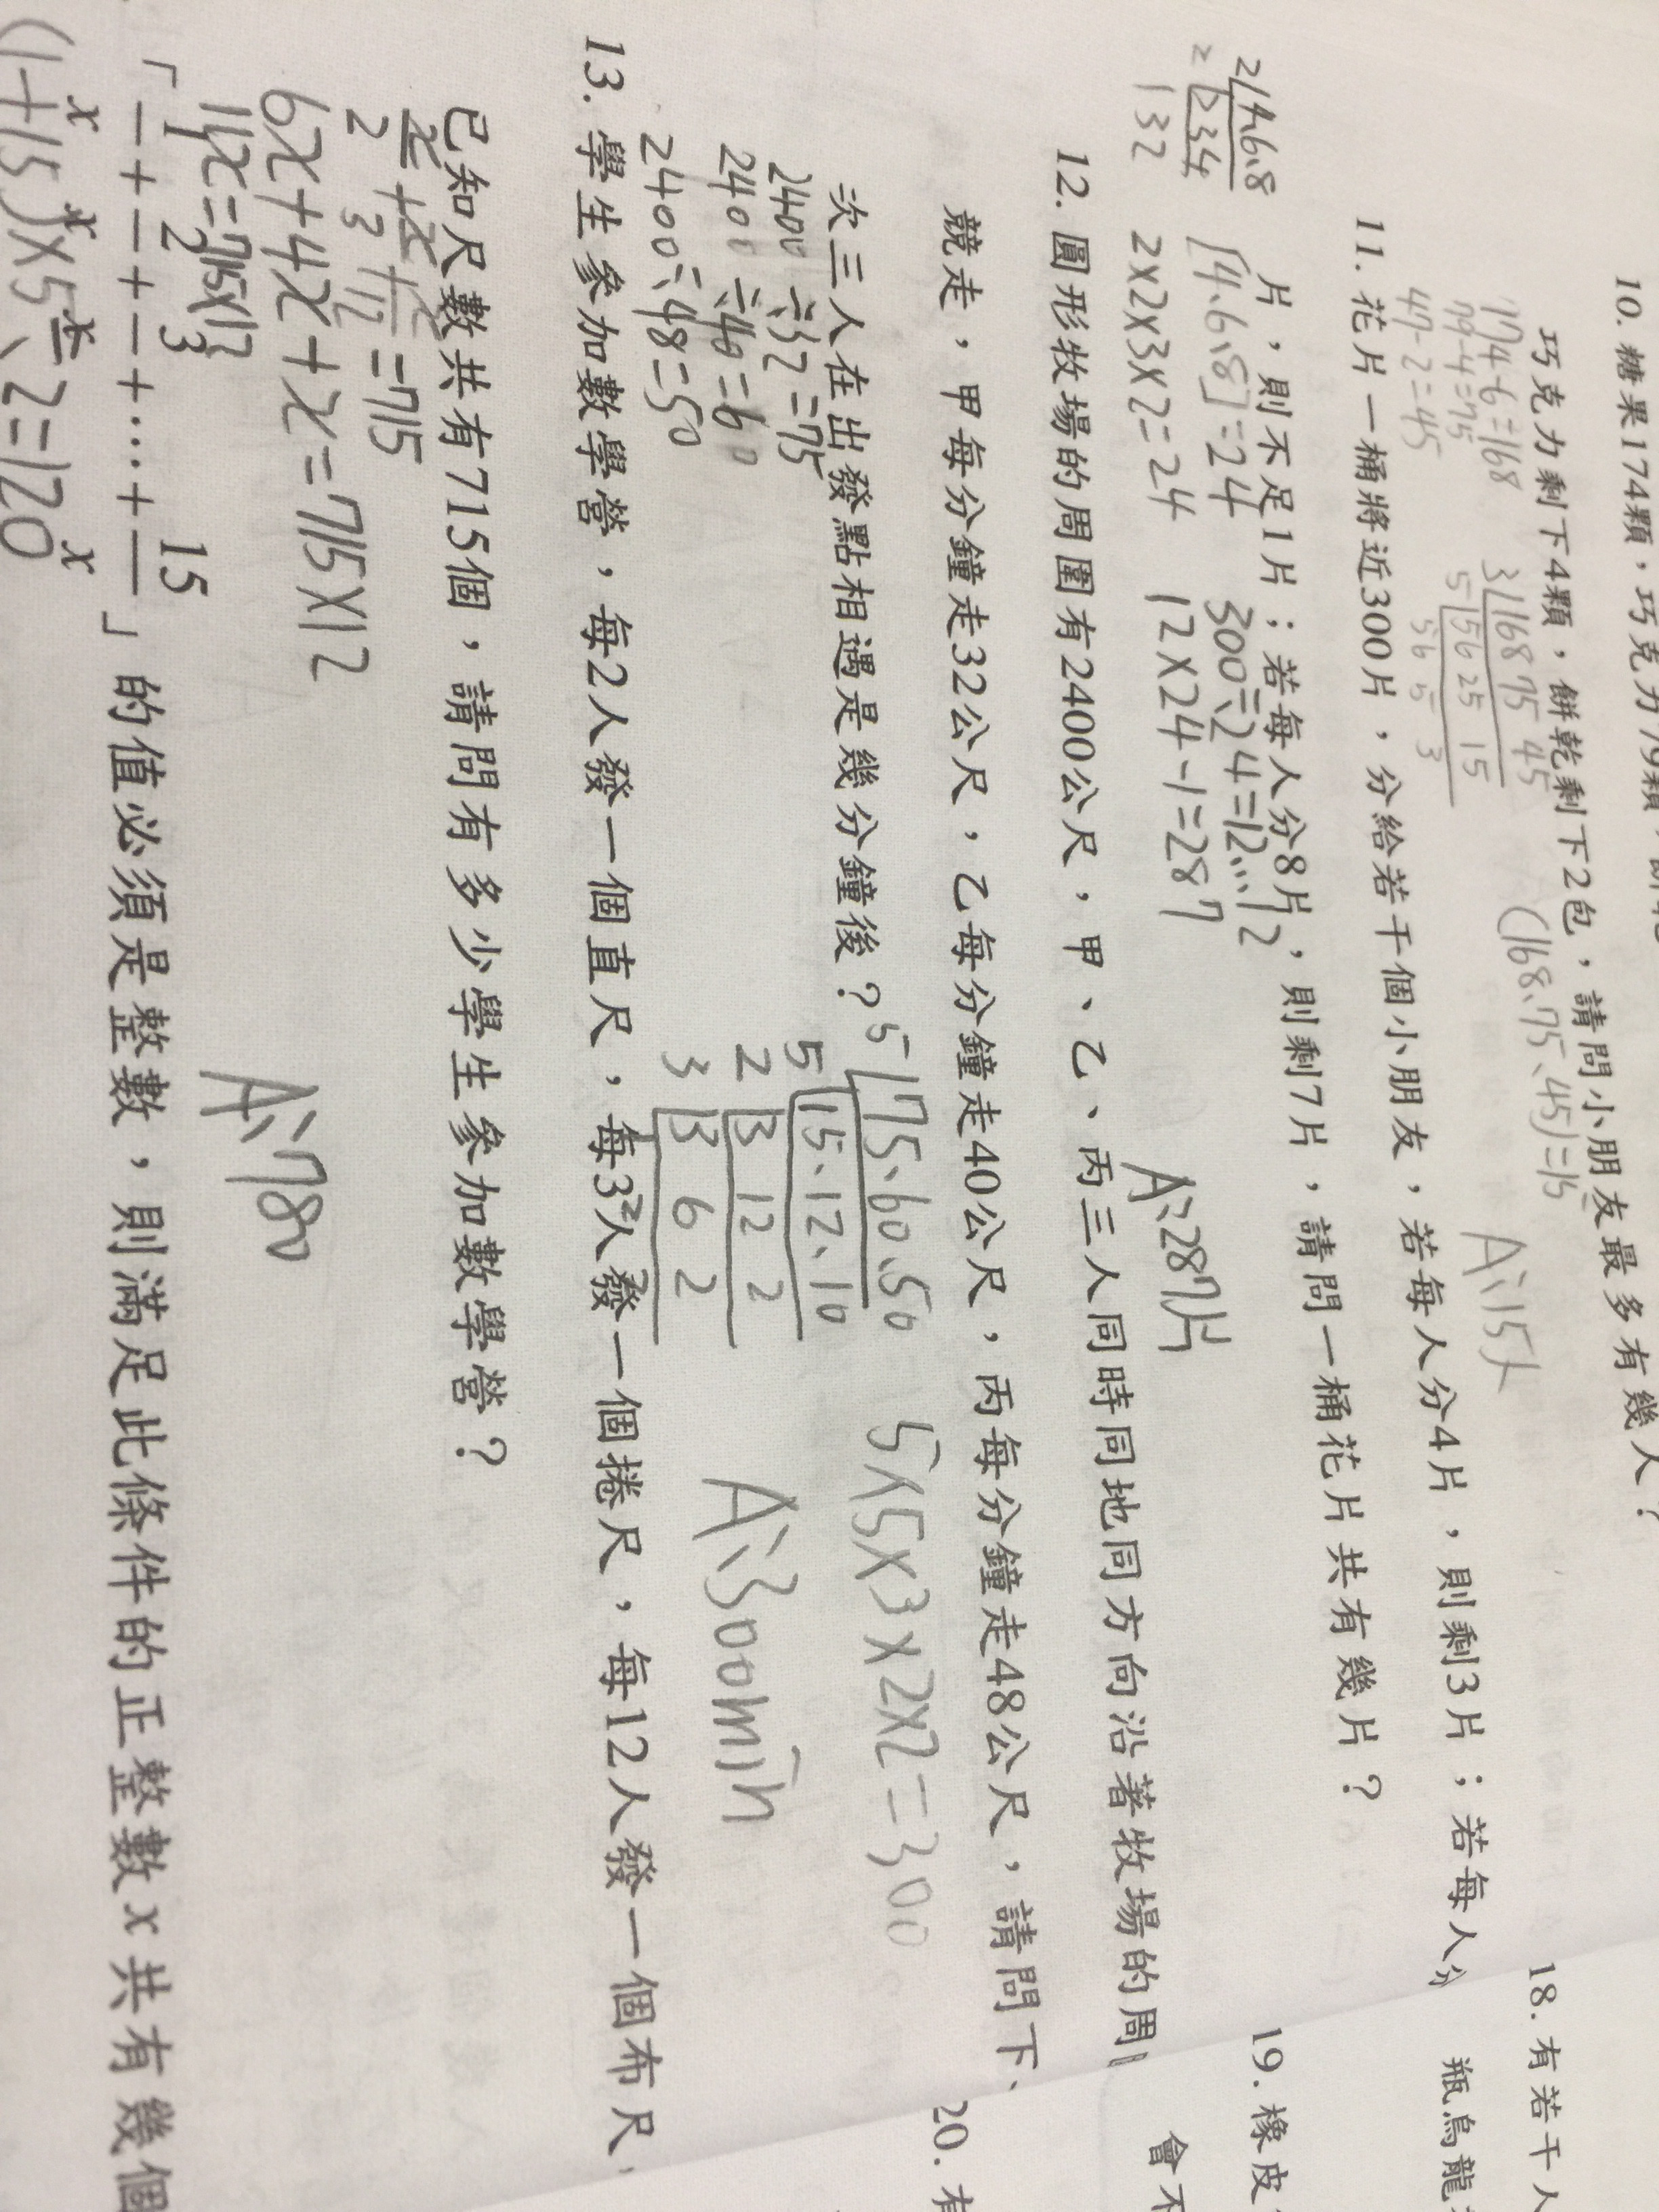 10. 糖果174顆，巧克力79顆，
巧克力剩下4顆，餅乾剩下2包，請問小朋友最多有幾人？
174-6=168
79-4=75
47-2=45
3 168 75 45
5 56 25 15
56 5 3
(168、75、45)=15
A：15人
11. 花片一桶將近300片，分給若干個小朋友，若每人分4片，則剩3片；若每人分
片，則不足1片；若每人分8片，則剩7片，請問一桶花片共有幾片？
2 4.6.8
2 2 3 4
1 3 2
[4、6、8]=24
2×2×3×2=24
300÷24=12…12
12×24-1=287
A：287片
12. 圓形牧場的周圍有2400公尺，甲、乙、丙三人同時同地同方向沿著牧場的周
競走，甲每分鐘走32公尺，乙每分鐘走40公尺，丙每分鐘走48公尺，請問下、
次三人在出發點相遇是幾分鐘後？
2400÷32=75
2400÷40=60
2400÷48=50
5 75、60、50
5 15、12、10
2 3 12 2
3 3 6 2
5×5×3×2×2=300
A：300min
13. 學生參加數學營，每2人發一個直尺，每3人發一個捲尺，每12人發一個布尺，
已知尺數共有715個，請問有多少學生參加數學營？
x/2+x/3+x/12=715
6x+4x+x=715×12
11x=715×12
A：780
「1/x+2/x+3/x+…+15/x」的值必須是整數，則滿足此條件的正整數x共有幾個
(1+15)×15÷2=120
18. 有若干人
瓶烏龍
19. 橡皮
會不
20. 有